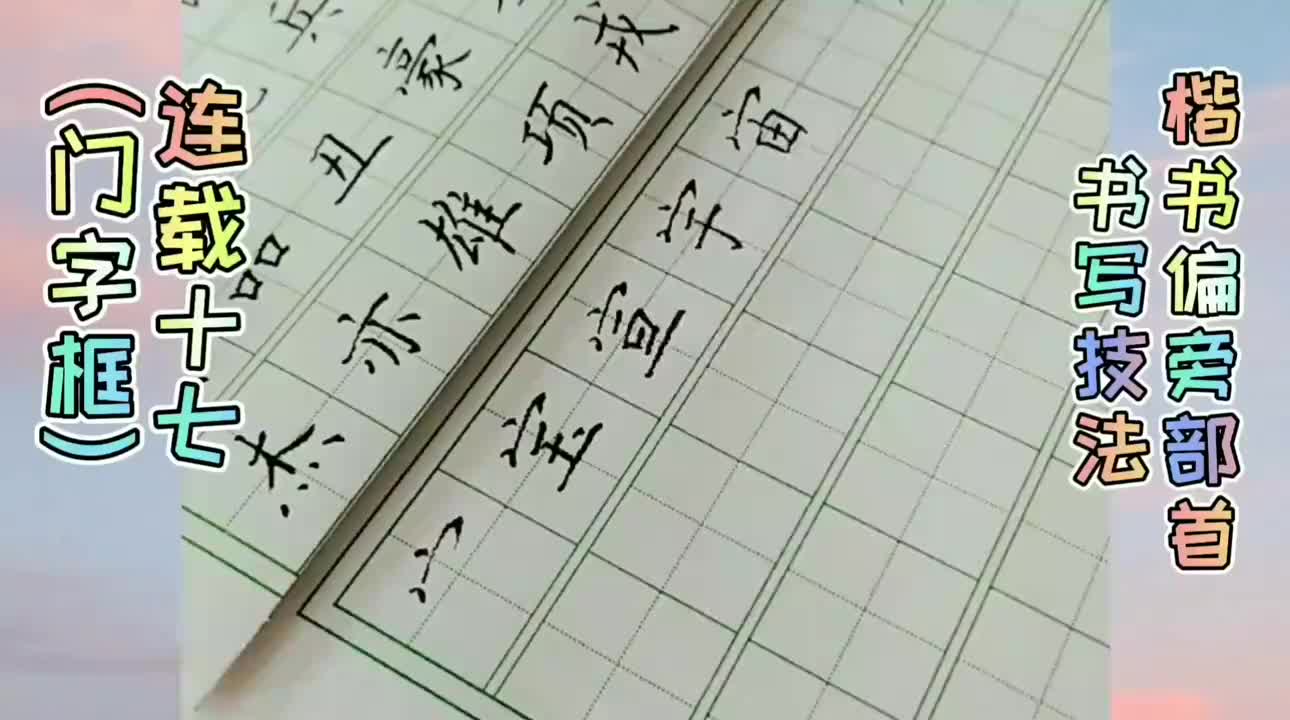 楷书偏旁部首
书写技法
连载十七
（门字框）
宀宝宣宇宙
杰亦雄项
品丑豪